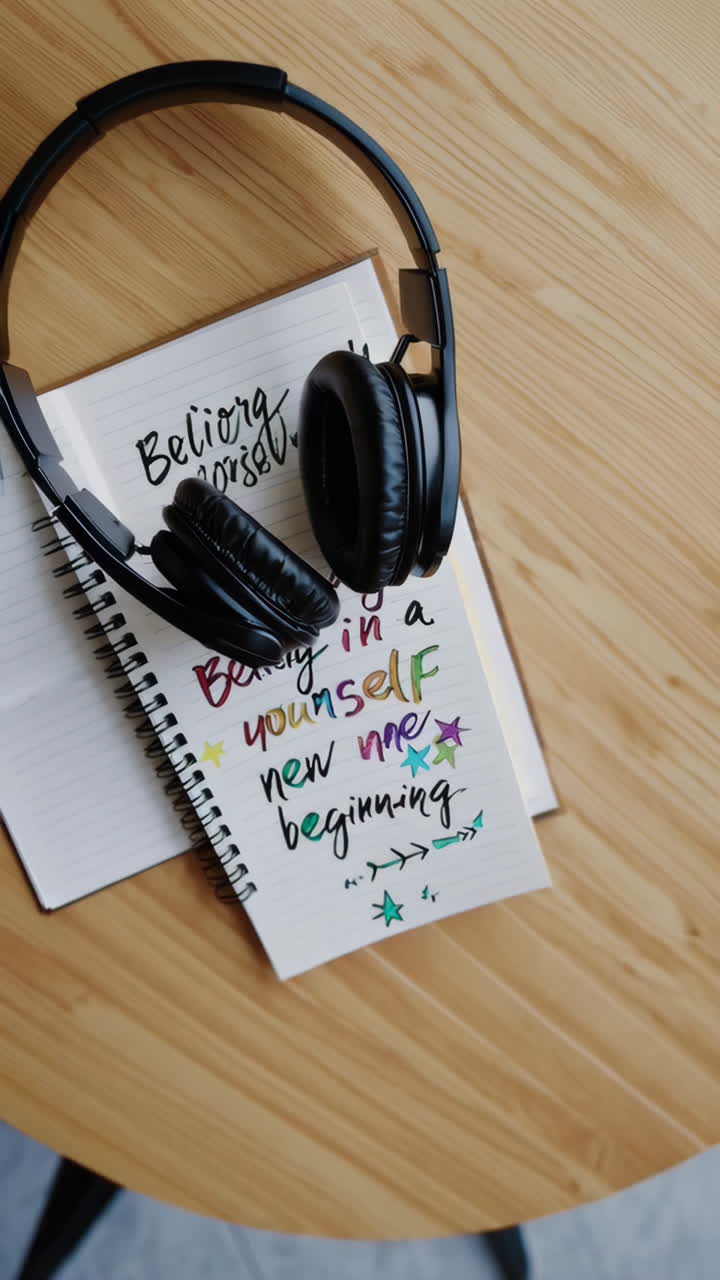 Beliorg
Beliory in a
yourself
new nne
beginning